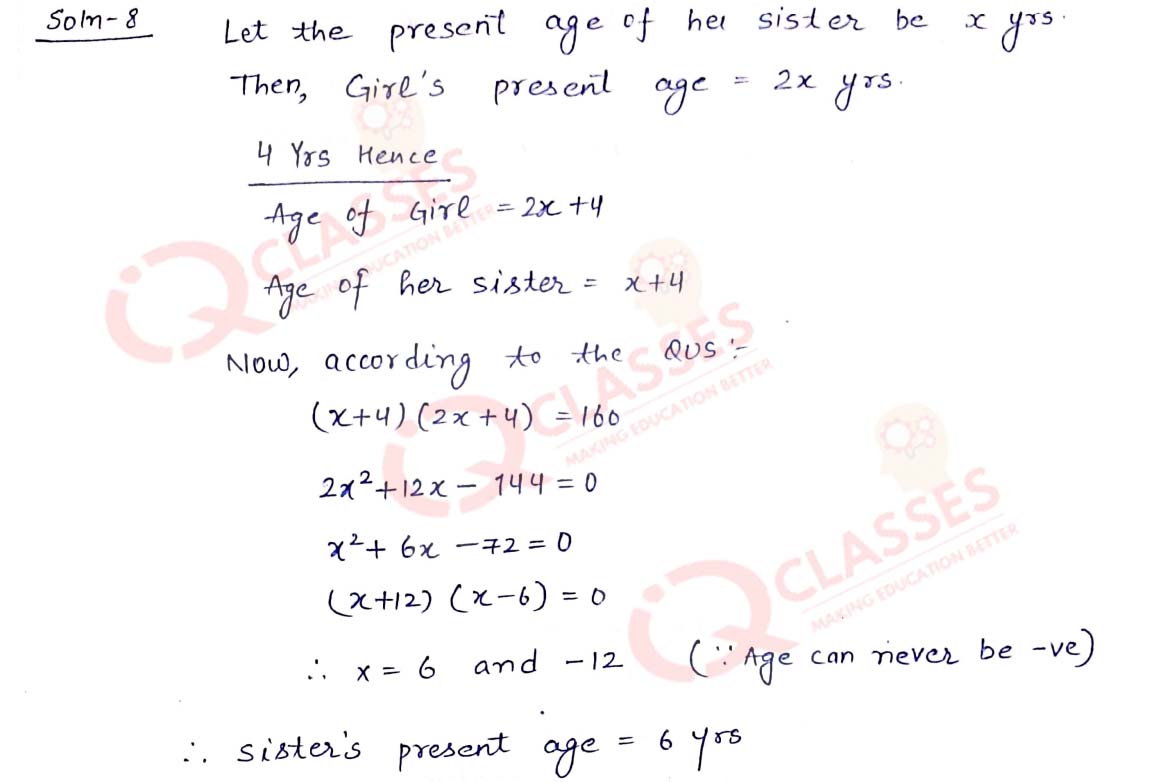 Soln-8
Let the present age of her sister be x yrs.
Then, Girl's present age = 2x yrs.
4 Yrs Hence
Age of Girl = 2x+4
Age of her sister = x+4
Now, according to the QUS :-
(x+4) (2x+4) = 160
2x²+12x - 144 = 0
x²+ 6x -72 = 0
(x+12) (x-6) = 0
∴ x = 6 and -12 (∵ Age can never be -ve)
∴ sister's present age = 6 yrs
iQ CLASSES
MAKING EDUCATION BETTER
iQ CLASSES
MAKING EDUCATION BETTER
iQ CLASSES
MAKING EDUCATION BETTER